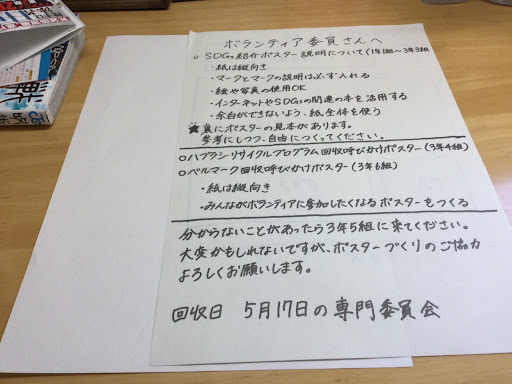 ボランティア委員さんへ
○ SDGs紹介ポスター説明について(1年1組〜3年3組
・紙は縦向き
・マークとマークの説明は必ず入れる
・絵や写真の使用OK
・インターネットやSDGsの関連の本を活用する
・余白ができないよう、紙全体を使う
★裏にポスターの見本があります。
参考にしつつ、自由につくってください。
○ハブラシリサイクルプログラム回収呼びかけポスター(3年4組)
○ベルマーク回収呼びかけポスター(3年6組)
・紙は縦向き
・みんながボランティアに参加したくなるポスターをつくる
分からないことがあったら3年5組に来てください。
大変かもしれないですが、ポスターづくりのご協力
よろしくお願いします。
回収日 5月17日の専門委員会